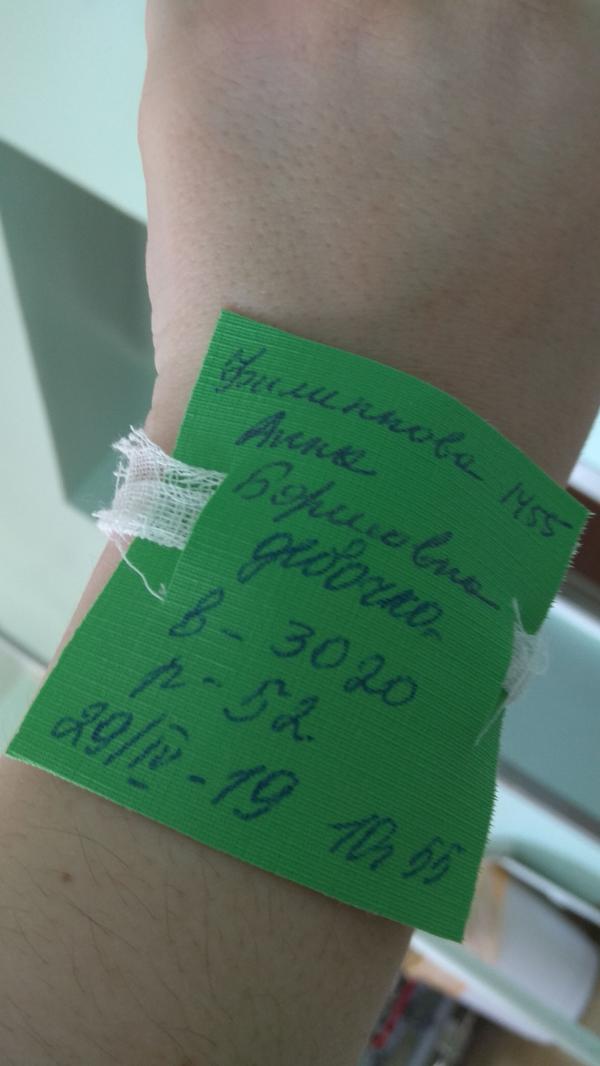 Филиппова 1455
Анна
Борисовна
девочка.
в - 3020
р - 52
29/IV - 19 10ч 55